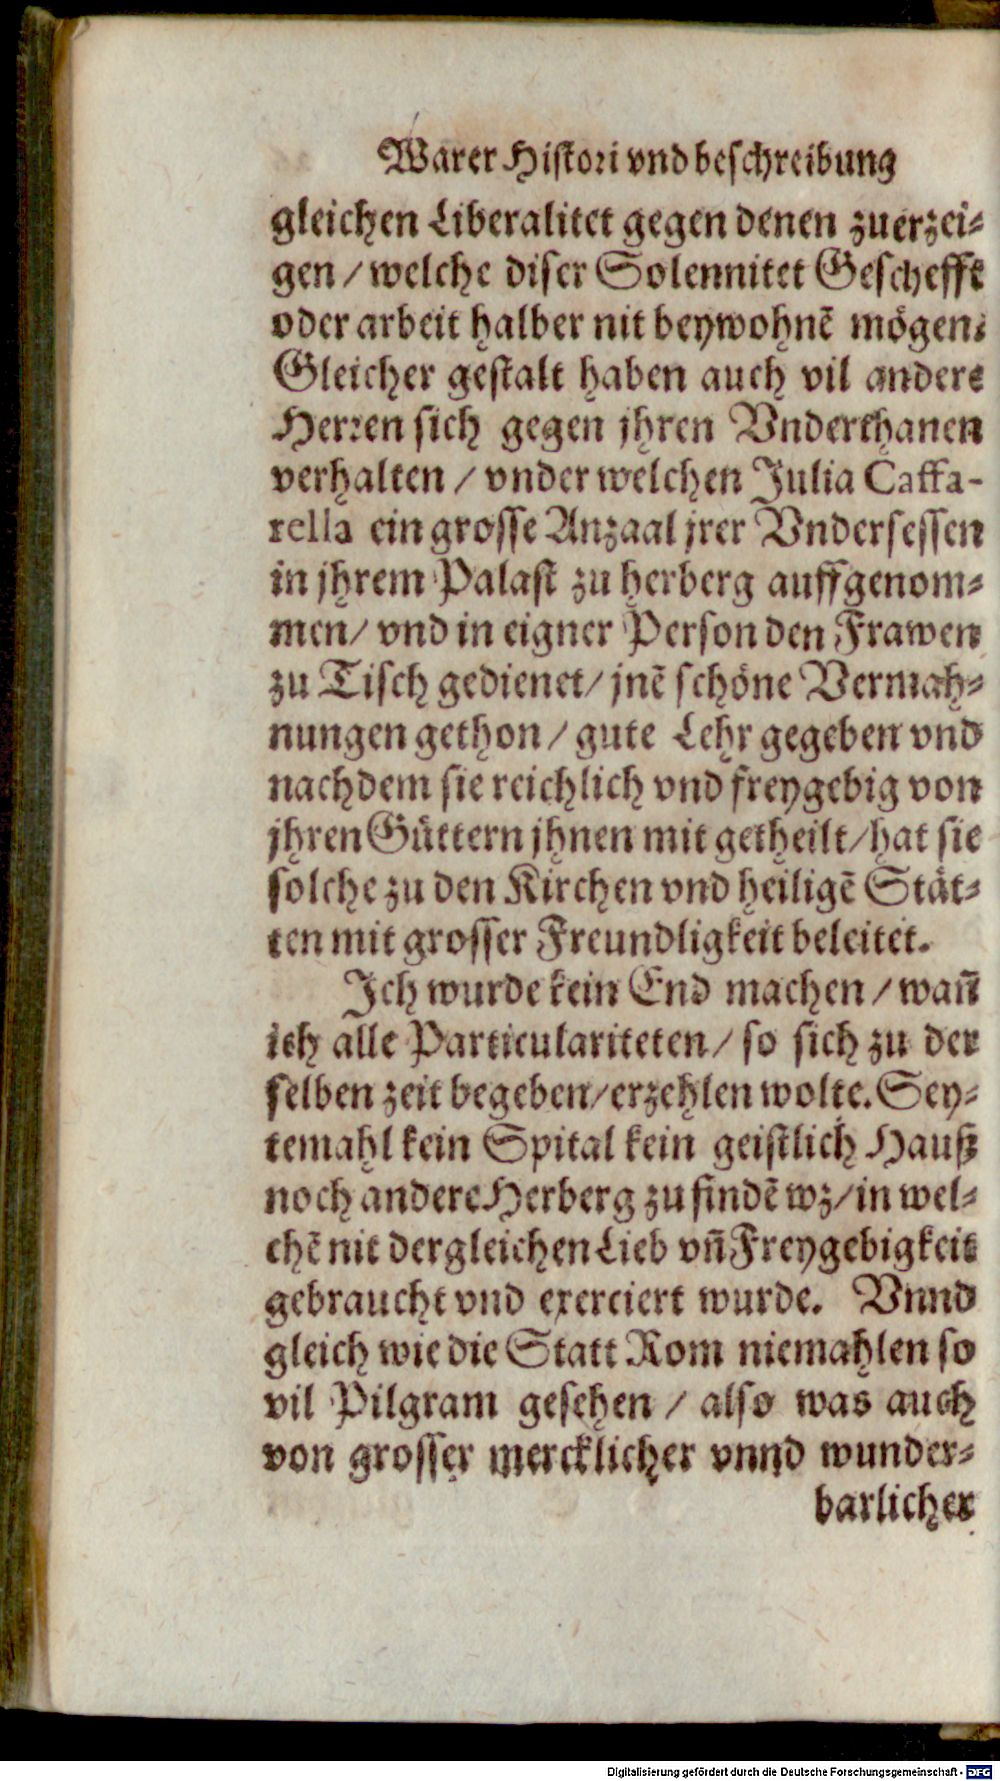 Warer Histori vnd beschreibung
gleichen Liberalitet gegen denen zuerzei⸗
gen / welche diser Solennitet Geschefft
oder arbeit halber nit beywohnẽ mögen.
Gleicher gestalt haben auch vil andere
Herren sich gegen jhren Vnderthanen
verhalten / vnder welchen Julia Caffa-
rella ein grosse Anzaal jrer Vndersessen
in jhrem Palast zu herberg auffgenom⸗
men / vnd in eigner Person den Frawen
zu Tisch gedienet / jnẽ schöne Vermah⸗
nungen gethon / gute Lehr gegeben vnd
nachdem sie reichlich vnd freygebig von
jhren Güttern jhnen mit getheilt / hat sie
solche zu den Kirchen vnd heiligẽ Stät⸗
ten mit grosser Freundligkeit beleitet.
Ich wurde kein End machen / wañ
ich alle Particulariteten / so sich zu der
selben zeit begeben / erzehlen wolte. Sey⸗
temahl kein Spital kein geistlich Hauß
noch andere Herberg zu findẽ wz / in wel⸗
chẽ nit dergleichen Lieb vñ Freygebigkeit
gebraucht vnd exerciert wurde. Vnnd
gleich wie die Statt Rom niemahlen so
vil Pilgram gesehen / also was auch
von grosser mercklicher vnnd wunder⸗
barlicher
Digitalisierung gefördert durch die Deutsche Forschungsgemeinschaft - DFG